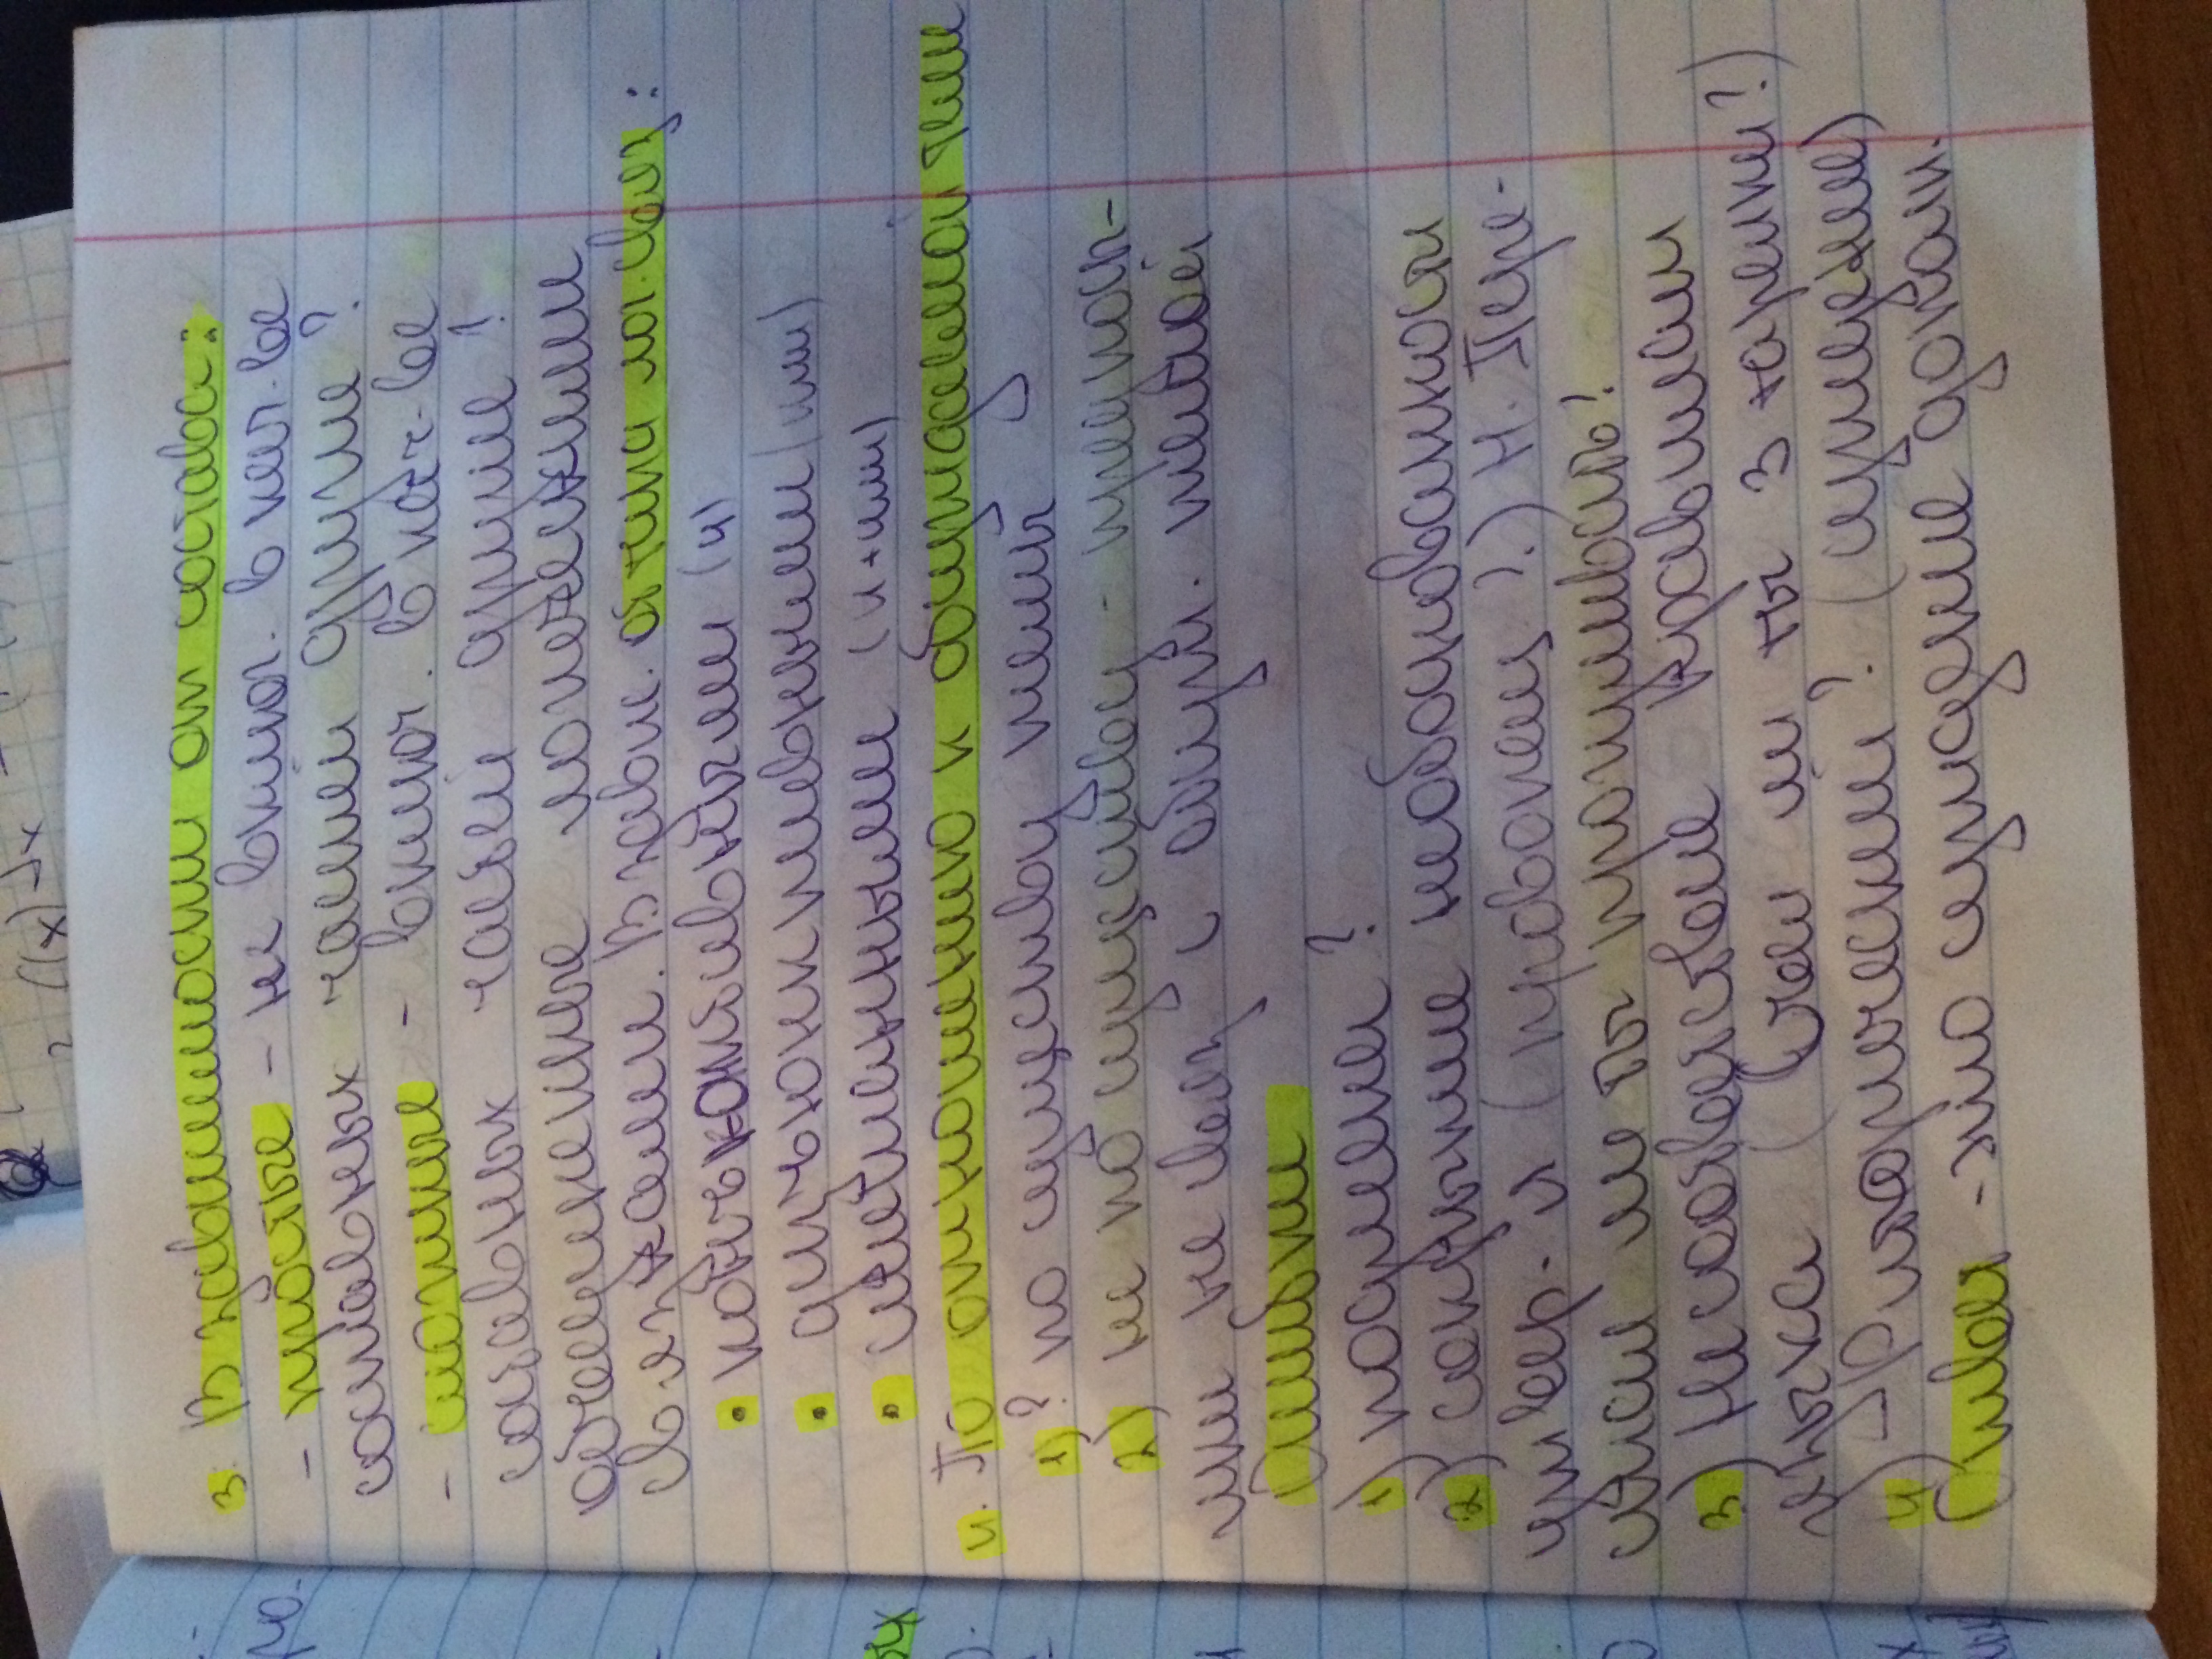 3. В зависимости от состава:
- простые - не включ. в кач-ве
составных частей другие ?
- сложные - включ. в кач-ве
составных частей другие ?
объединенные логическими
связками. В завис. от типа лог. связ:
• конъюнктивными (и)
• дизъюнктивными (или)
• смешанными (и+или)
4. По отношению к обсуждаемой теме
1) ? по существу темы
2) не по существу - предпосы-
лки не связ с обсуж. темой
Ошибки
1) подмена ?
2) сокрытие необоснованности
утвер-я (провокац ?) Н. Пере-
стал ли ты прогуливать?
3) Несоответствие правилам
языка (Счел ли ты 3 тарелки?)
4) Риторический ? (суждение)
Ответ - это суждение